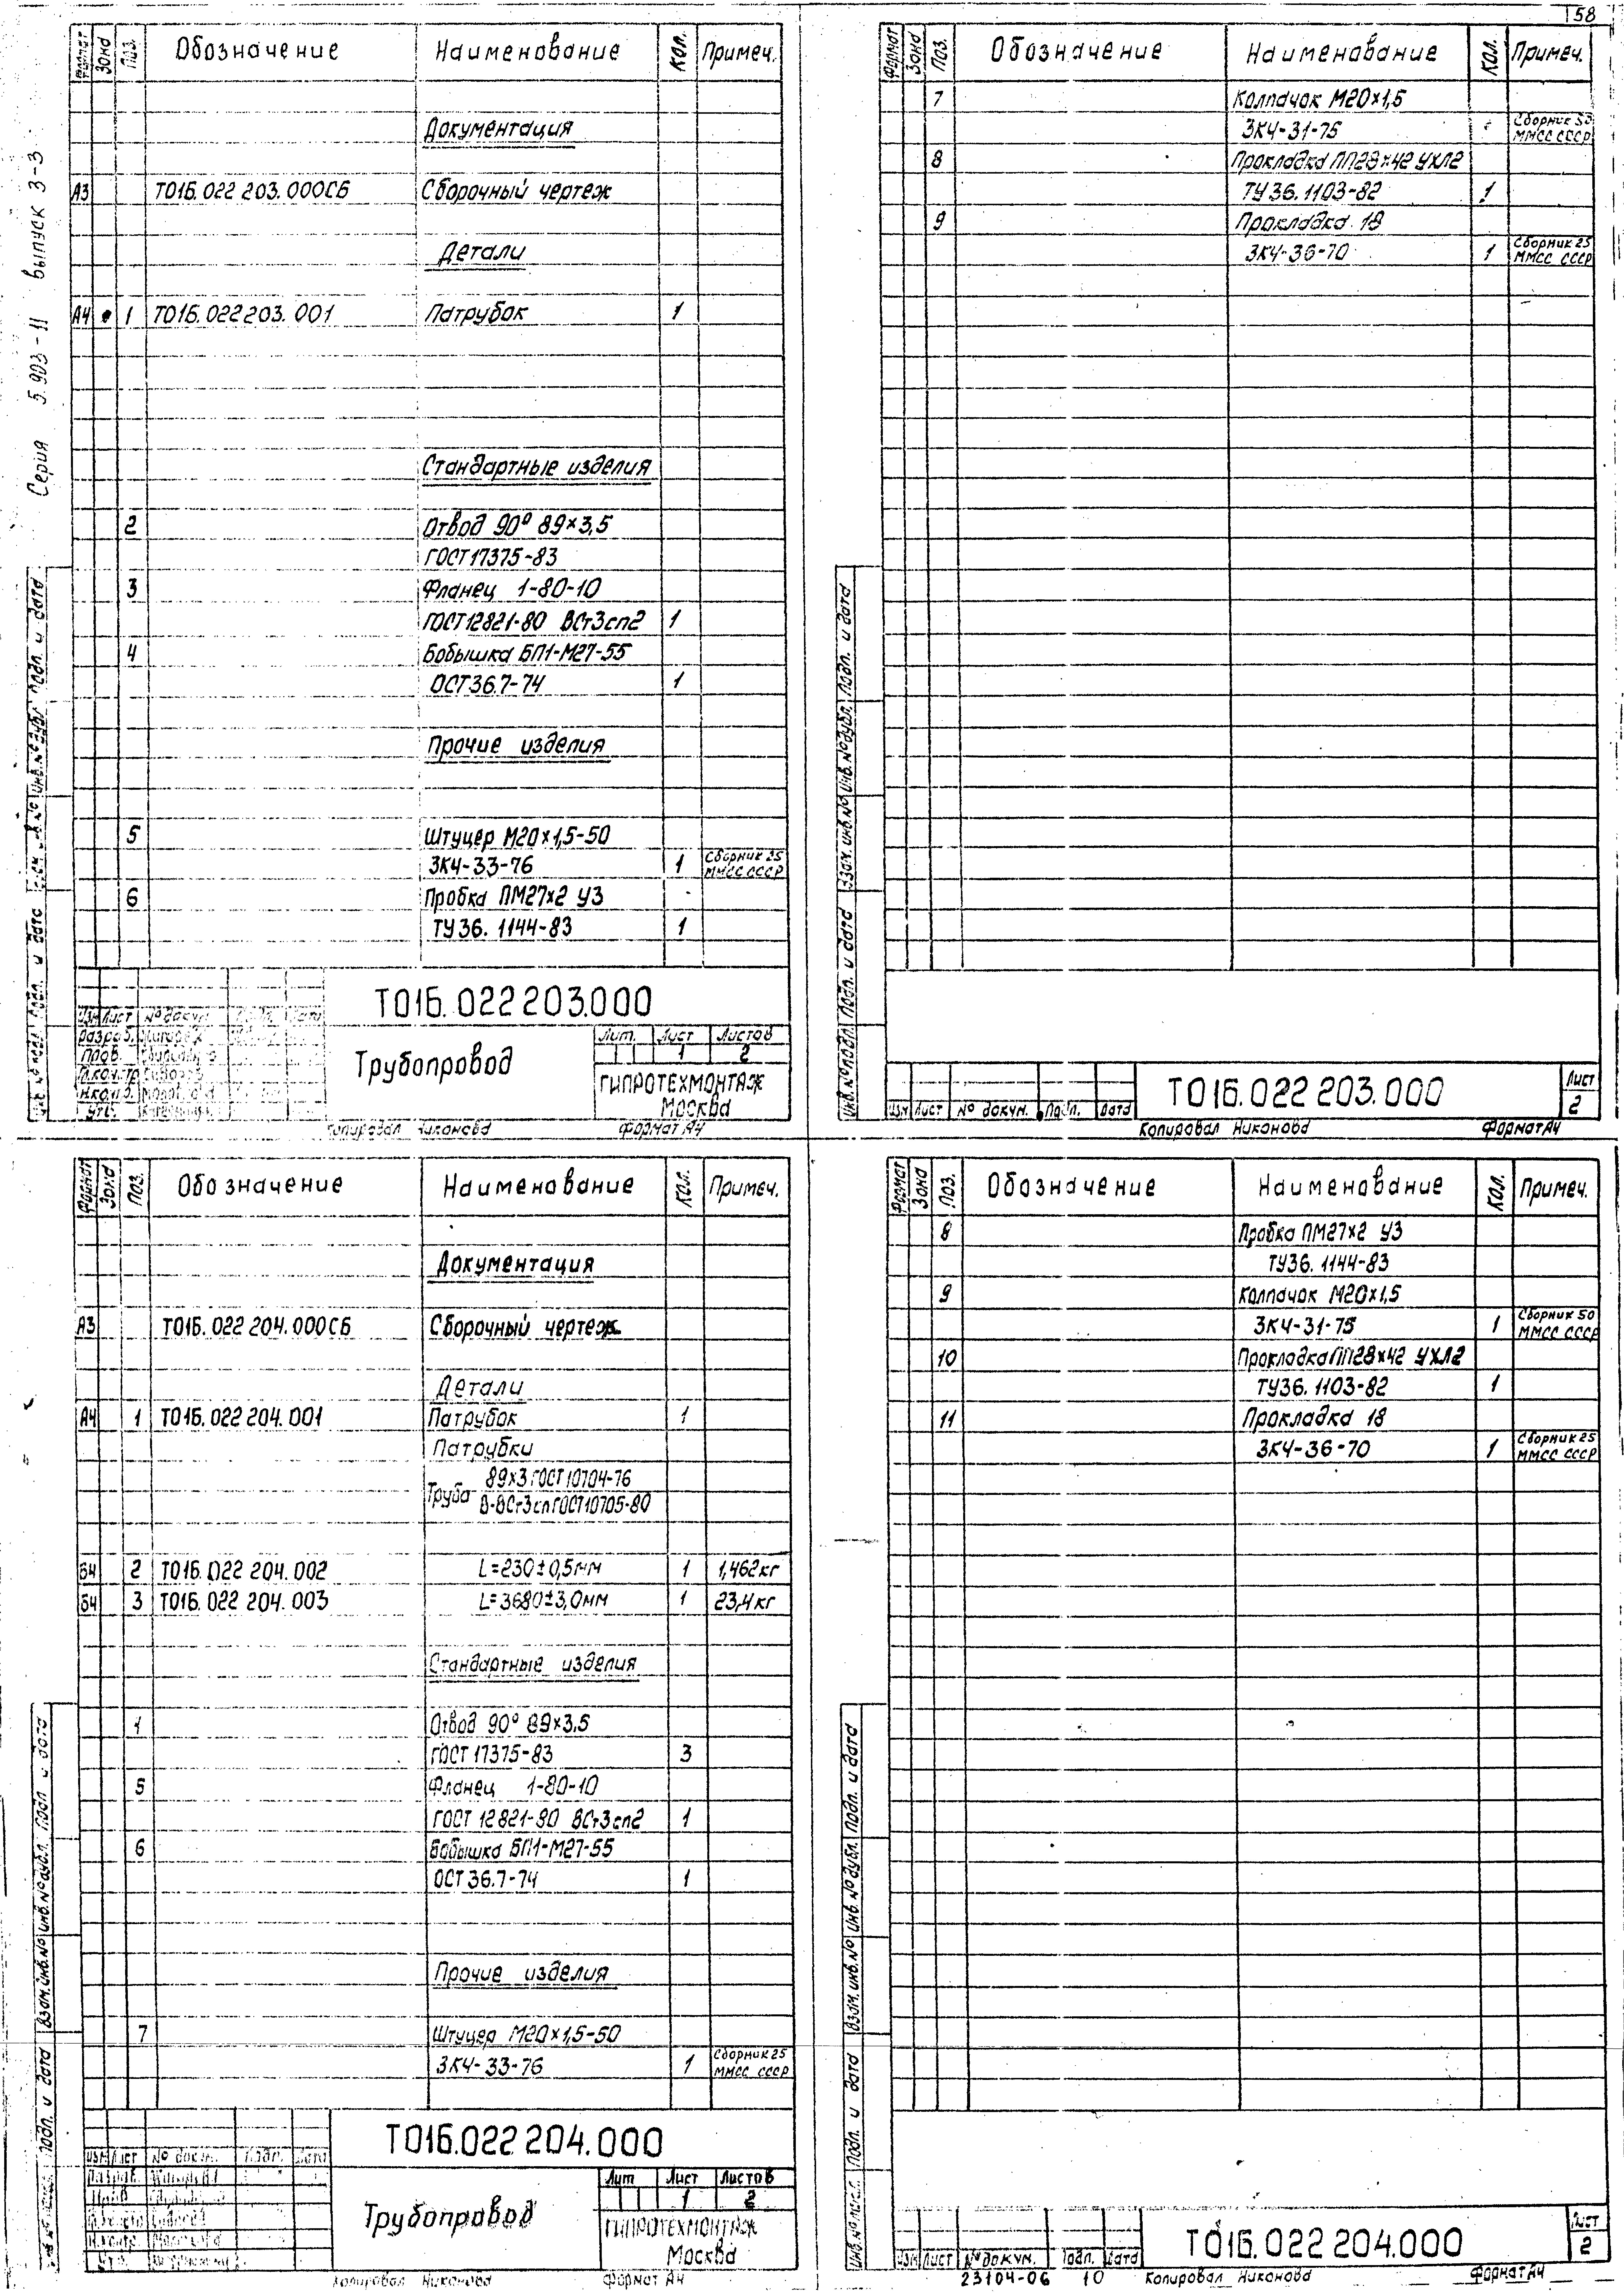 58
Серия 5.903-11 выпуск 3-3
Формат Зона Поз. Обозначение Наименование Кол. Примеч.
Документация
А3 Т01Б.022 203.000СБ Сборочный чертеж
Детали
А4 1 Т01Б.022 203.001 Патрубок 1
Стандартные изделия
2 Отвод 90° 89×3,5
ГОСТ 17375-83
3 Фланец 1-80-10
ГОСТ 12821-80 ВСт3сп2 1
4 Бобышка БП1-М27-55
ОСТ 36.7-74 1
Прочие изделия
5 Штуцер М20×1,5-50
ЗК4-33-76 1 Сборник 25 ММСС СССР
6 Пробка ПМ27×2 У3
ТУ 36.1144-83 1
Т01Б.022 203.000
Изм Лист № докум. Дата
Разраб.
Пров.
Н.контр.
Утв.
Трубопровод
Лит. Лист Листов
1 2
ГИПРОТЕХМОНТАЖ
Москва
Копировал Никонова Формат А4
Подп. и дата
Формат Зона Поз. Обозначение Наименование Кол. Примеч.
7 Колпачок М20×1,5
ЗК4-31-75 Сборник ММСС СССР
8 Прокладка ПП28×42 УХЛ2
ТУ 36.1103-82 1
9 Прокладка 18
ЗК4-36-70 1 Сборник 25 ММСС СССР
Инв.№ подл. Подп. и дата Взам.инв.№ Инв.№ дубл. Подп. и дата
Изм Лист № докум. Подп. Дата
Т01Б.022 203.000
Лист
2
Копировал Никонова Формат А4
Формат Зона Поз. Обозначение Наименование Кол. Примеч.
Документация
А3 Т01Б.022 204.000СБ Сборочный чертеж
Детали
А4 1 Т01Б.022 204.001 Патрубок 1
Патрубки
Труба 89×3 ГОСТ 10704-76
В-ВСт3сп ГОСТ 10705-80
Б4 2 Т01Б.022 204.002 L=230±0,5мм 1 1,462кг
Б4 3 Т01Б.022 204.003 L=3680±3,0мм 1 23,4кг
Стандартные изделия
4 Отвод 90° 89×3,5
ГОСТ 17375-83 3
5 Фланец 1-80-10
ГОСТ 12821-80 ВСт3сп2 1
6 Бобышка БП1-М27-55
ОСТ 36.7-74 1
Прочие изделия
7 Штуцер М20×1,5-50
ЗК4-33-76 1 Сборник 25 ММСС СССР
Подп. и дата Взам.инв.№ Инв.№ дубл. Подп. и дата
Т01Б.022 204.000
Изм Лист № докум. Подп. Дата
Разраб.
Н.контр.
Утв.
Трубопровод
Лит Лист Листов
1 2
ГИПРОТЕХМОНТАЖ
Москва
Копировал Никонова Формат А4
Формат Зона Поз. Обозначение Наименование Кол. Примеч.
8 Пробка ПМ27×2 У3
ТУ36.1144-83
9 Колпачок М20×1,5
ЗК4-31-75 1 Сборник 50 ММСС СССР
10 Прокладка ПП28×42 УХЛ2
ТУ36.1103-82 1
11 Прокладка 18
ЗК4-36-70 1 Сборник 25 ММСС СССР
Инв.№ подл. Подп. и дата Взам.инв.№ Инв.№ дубл. Подп. и дата
Изм Лист № докум. Подп. Дата
Т01Б.022 204.000
Лист
2
23104-06 10 Копировал Никонова Формат А4